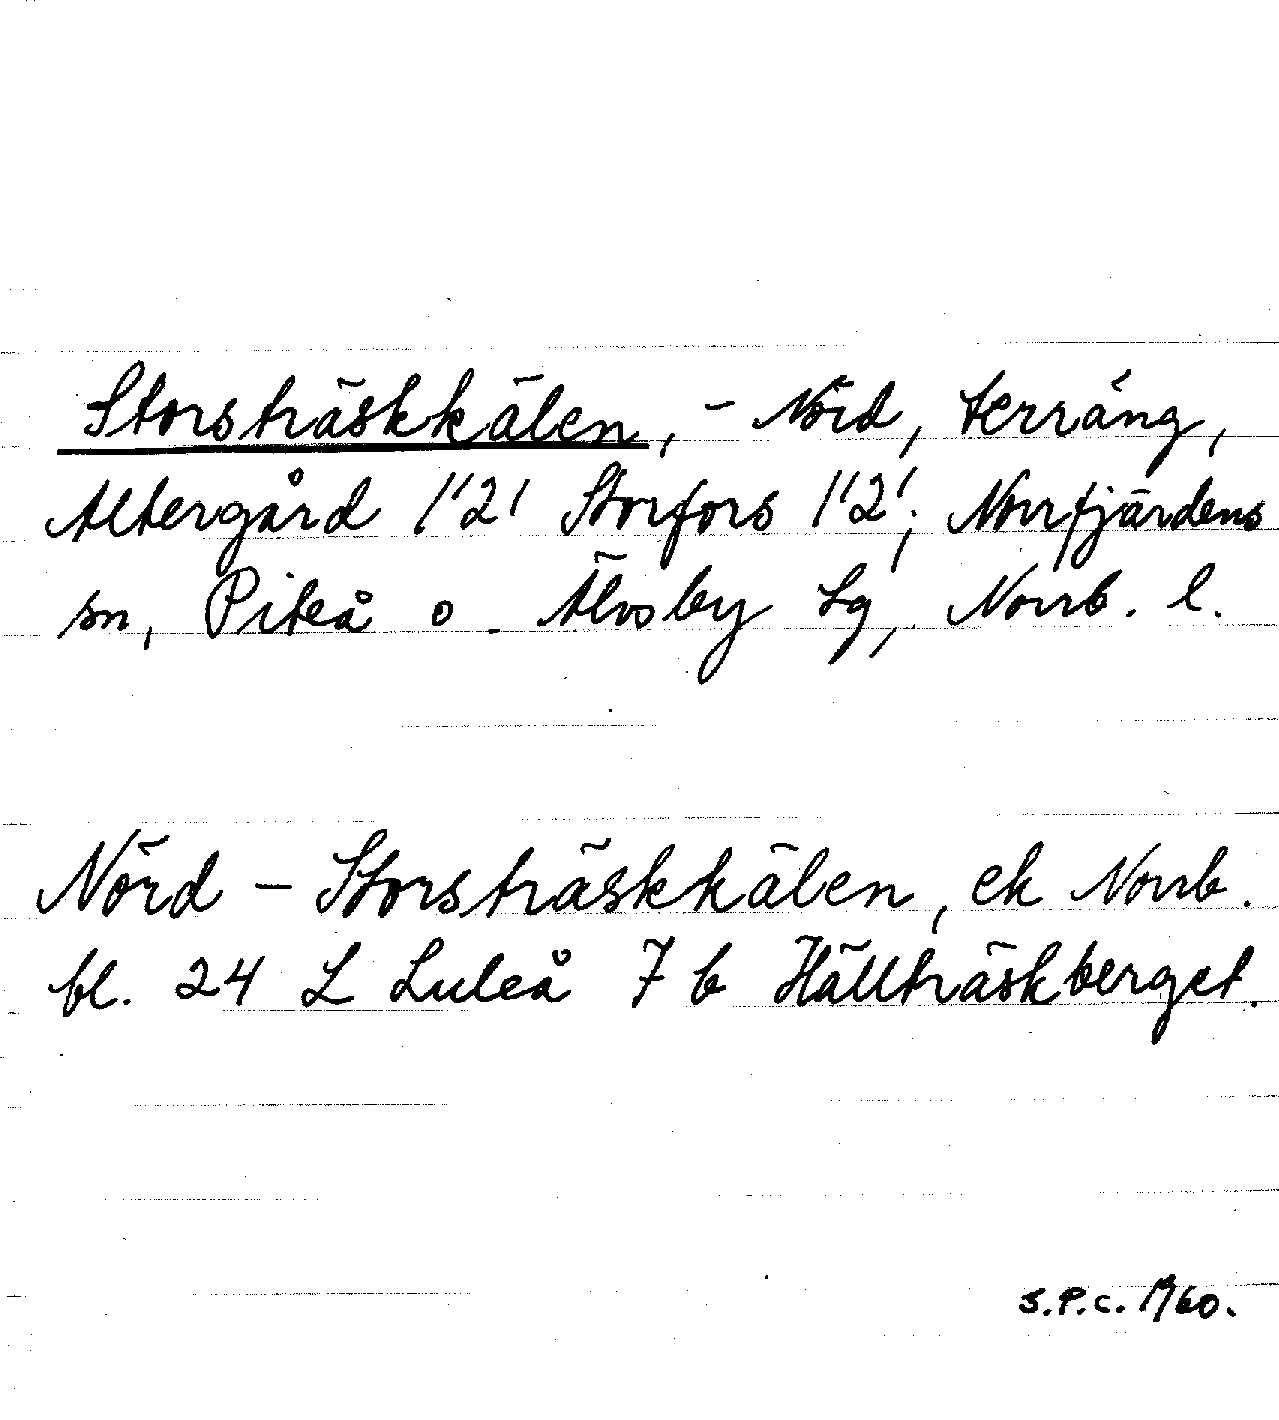 Storsträskkälen, - Nörd, terräng,
Altergård 1'2' Storfors 1'2'; Norrfjärdens
sn, Piteå o. Älvsby tg, Norrb. l.
Nörd - Storsträskkälen, ek Norrb.
bl. 24 L Luleå 7 b Hällträskberget.
S.P.C. 1960.